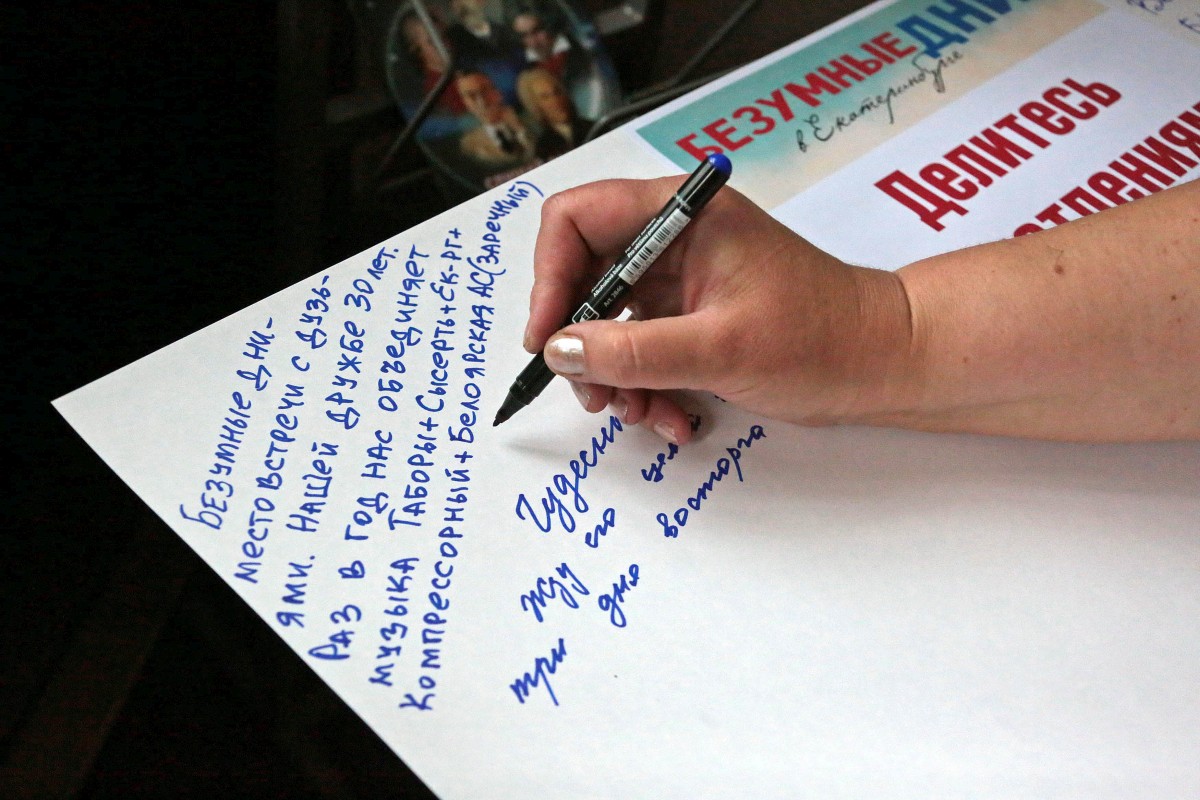 БЕЗУМНЫЕ ДНИ
в Екатеринбурге
Делитесь
БЕЗУМНЫЕ ДНИ-
МЕСТО ВСТРЕЧИ С ДУЗЬ-
ЯМИ. НАШЕЙ ДРУЖБЕ 30 ЛЕТ.
РАЗ В ГОД НАС ОБЪЕДИНЯЕТ
МУЗЫКА ТАБОРЫ+СЫСЕРТЬ+ЕК-РГ+
КОМПРЕССОРНЫЙ+БЕЛОЯРСКАЯ АС(ЗАРЕЧНЫЙ)
Жду его
три дня восторга